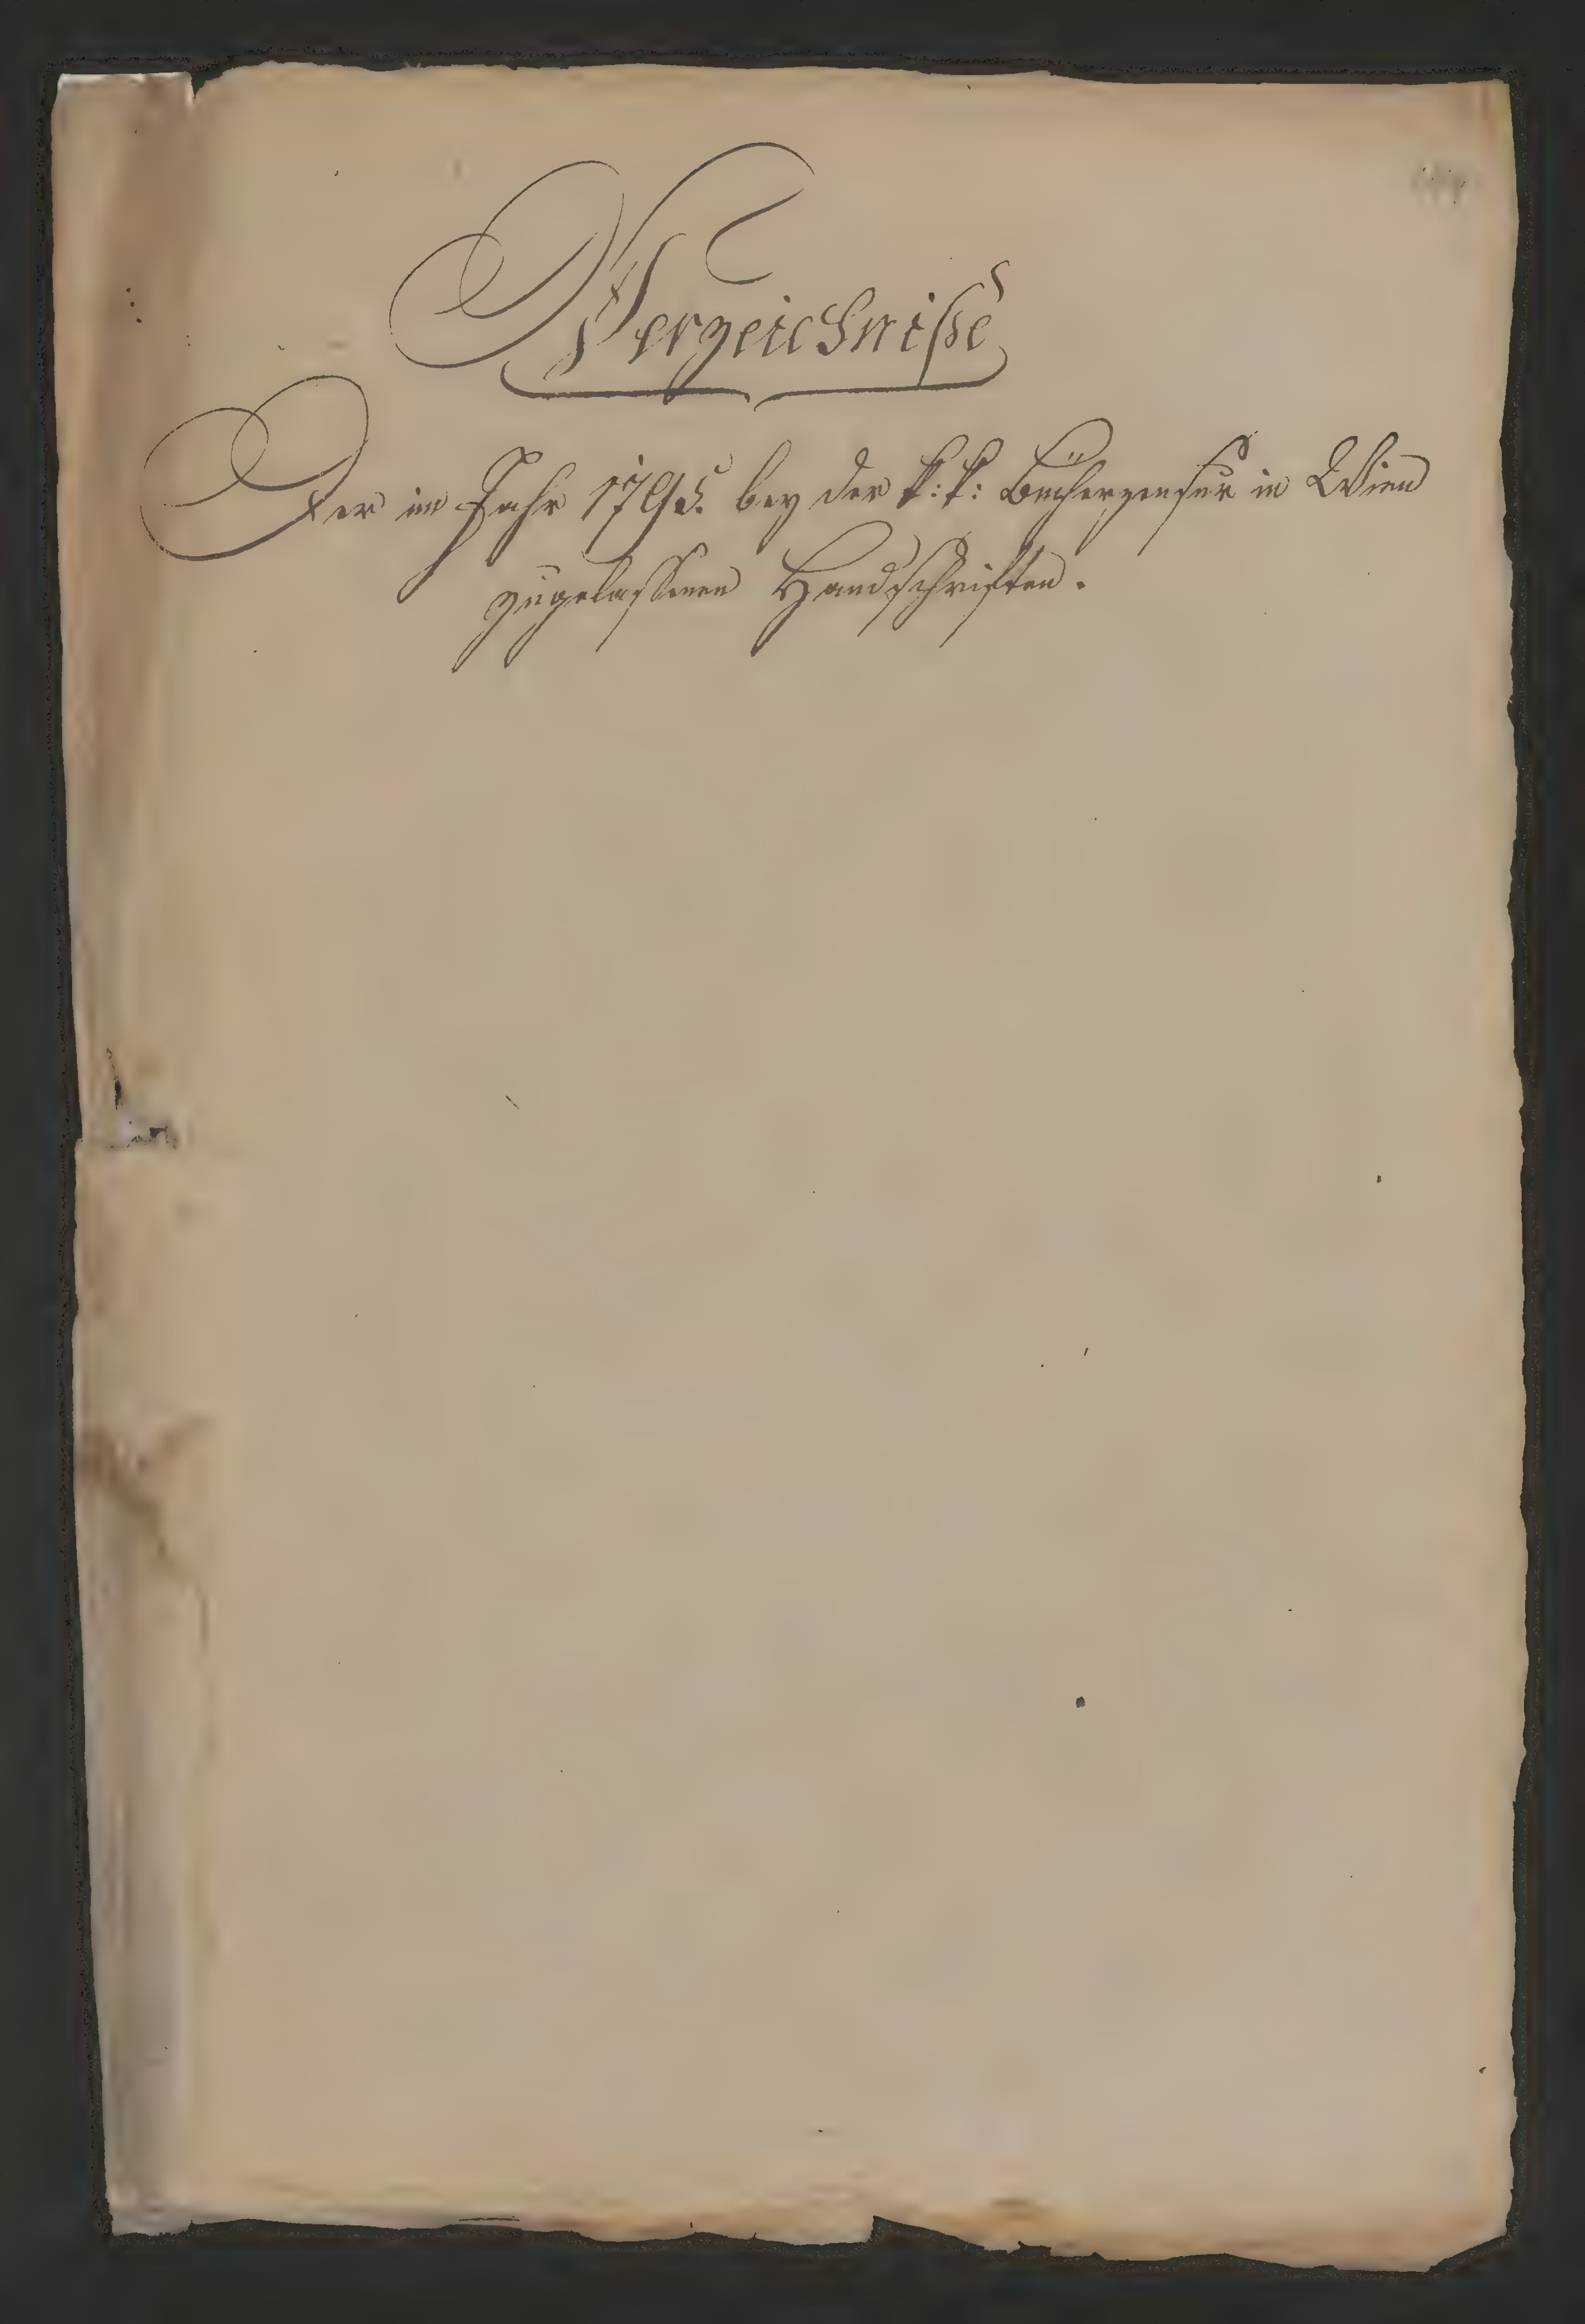 Verzeichniße
Der im Jahr 1795. bey der k: k: Bücherzensur in Wien
zugelassenen Handschriften.